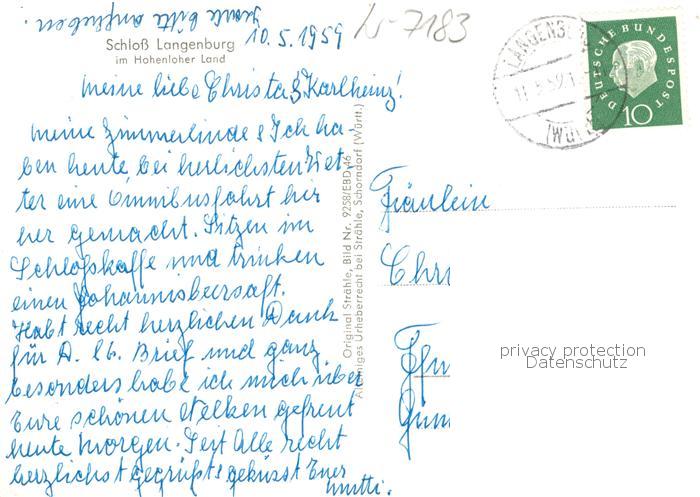 bitte anheben.
Schloß Langenburg
im Hohenloher Land
10.5.1959
w-7183
LANGENBURG
(WÜRTT)
DEUTSCHE BUNDESPOST
10
meine liebe Christa & Karlheinz!
meine Zimmerlinde & Ich ha-
ben heute bei herlichsten Wet-
ter eine Omnibusfahrt hier
her gemacht. Sitzen im
Schloßkaffe und trinken
einen Johannisbeersaft.
Habt recht herzlichen Dank
für D. lb. Brief und ganz
besonders habe ich mich über
Eure schönen Nelken gefreut
heute morgen. Seit Alle recht
herzlichst gegrüßt & geküsst Euer
mutti.
Original Strähle, Bild Nr. 9258/EBD/46
Alleiniges Urheberrecht bei Strähle, Schorndorf (Württ.)
Fräulein
Chri
privacy protection
Datenschutz